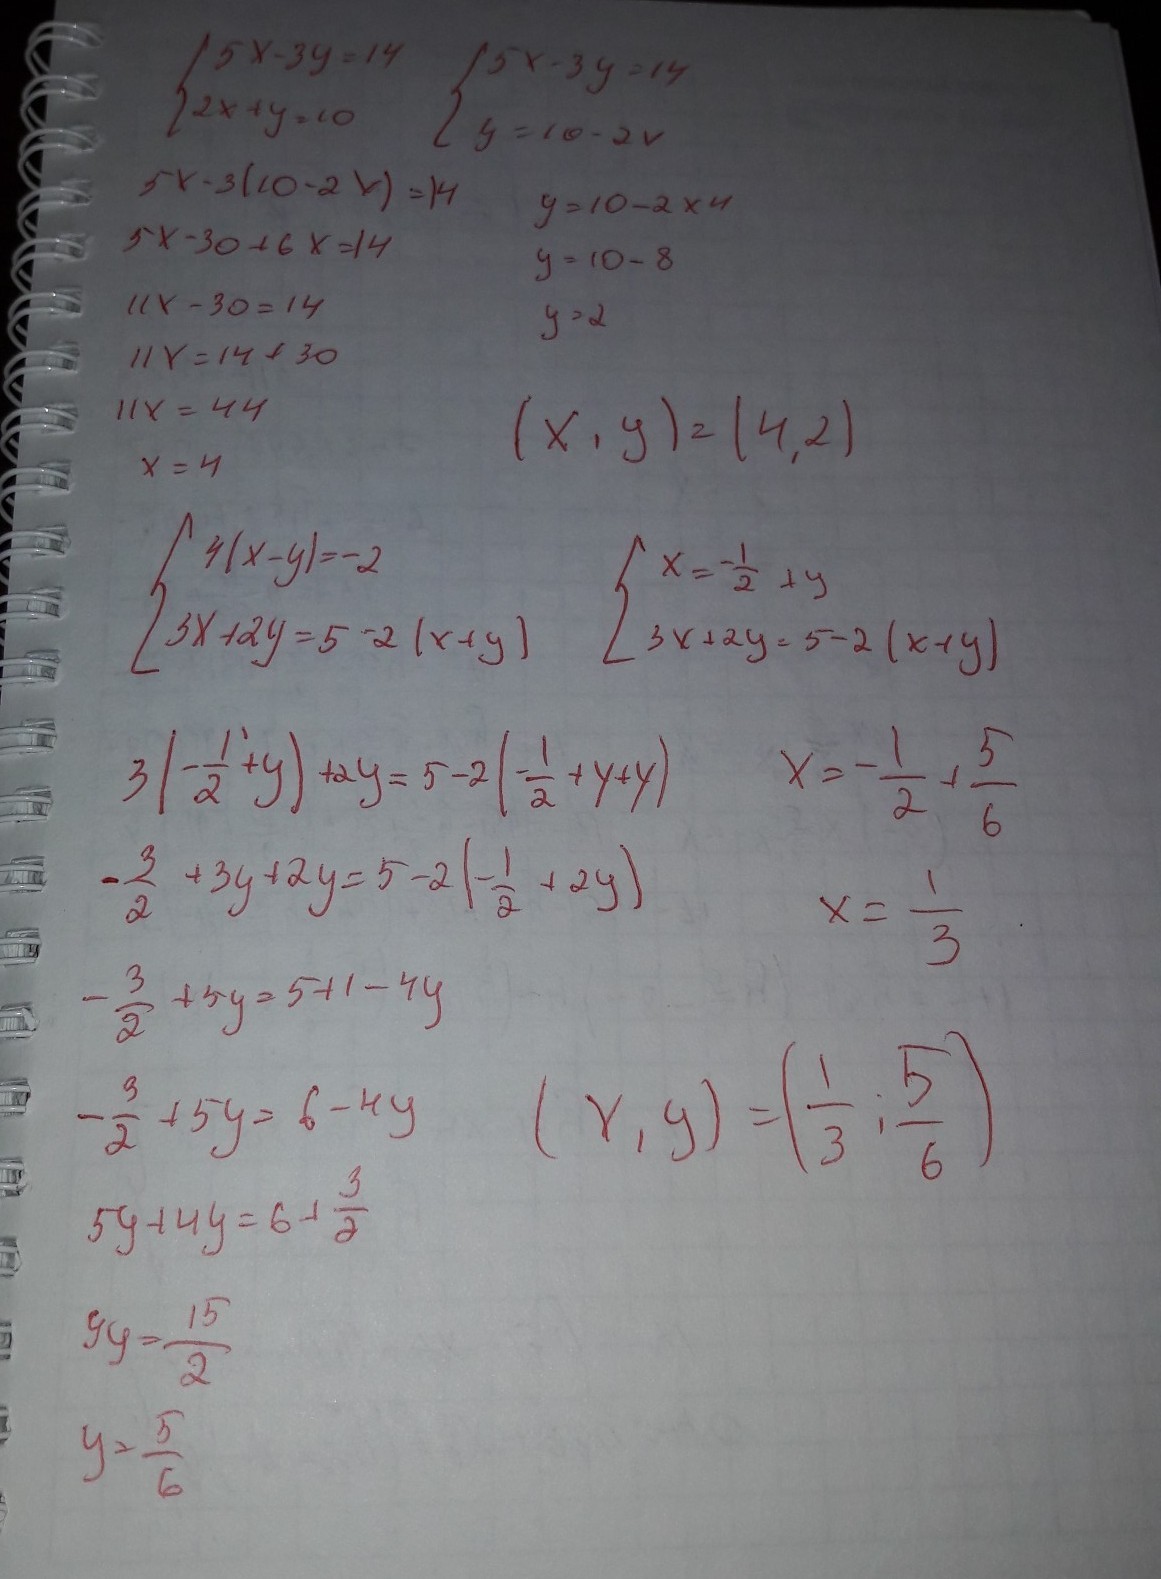 {5x-3y=14 {5x-3y=14
{2x+y=10 {y=10-2x
5x-3(10-2x)=14
5x-30+6x=14
11x-30=14
11x=14+30
11x=44
x=4
y=10-2x4
y=10-8
y=2
(x,y)=(4,2)
{4(x-y)=-2 {x=-1/2+y
{3x+2y=5-2(x+y) {3x+2y=5-2(x+y)
3(-1/2+y)+2y=5-2(-1/2+y+y)
-3/2+3y+2y=5-2(-1/2+2y)
-3/2+5y=5+1-4y
-3/2+5y=6-4y
5y+4y=6+3/2
9y=15/2
y=5/6
x=-1/2+5/6
x=1/3
(x,y)=(1/3;5/6)